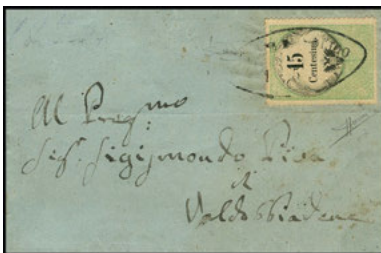 15
Centesimi
Al Preg.mo
Sig. Sigismondo Piva
di
Valdobbiadene